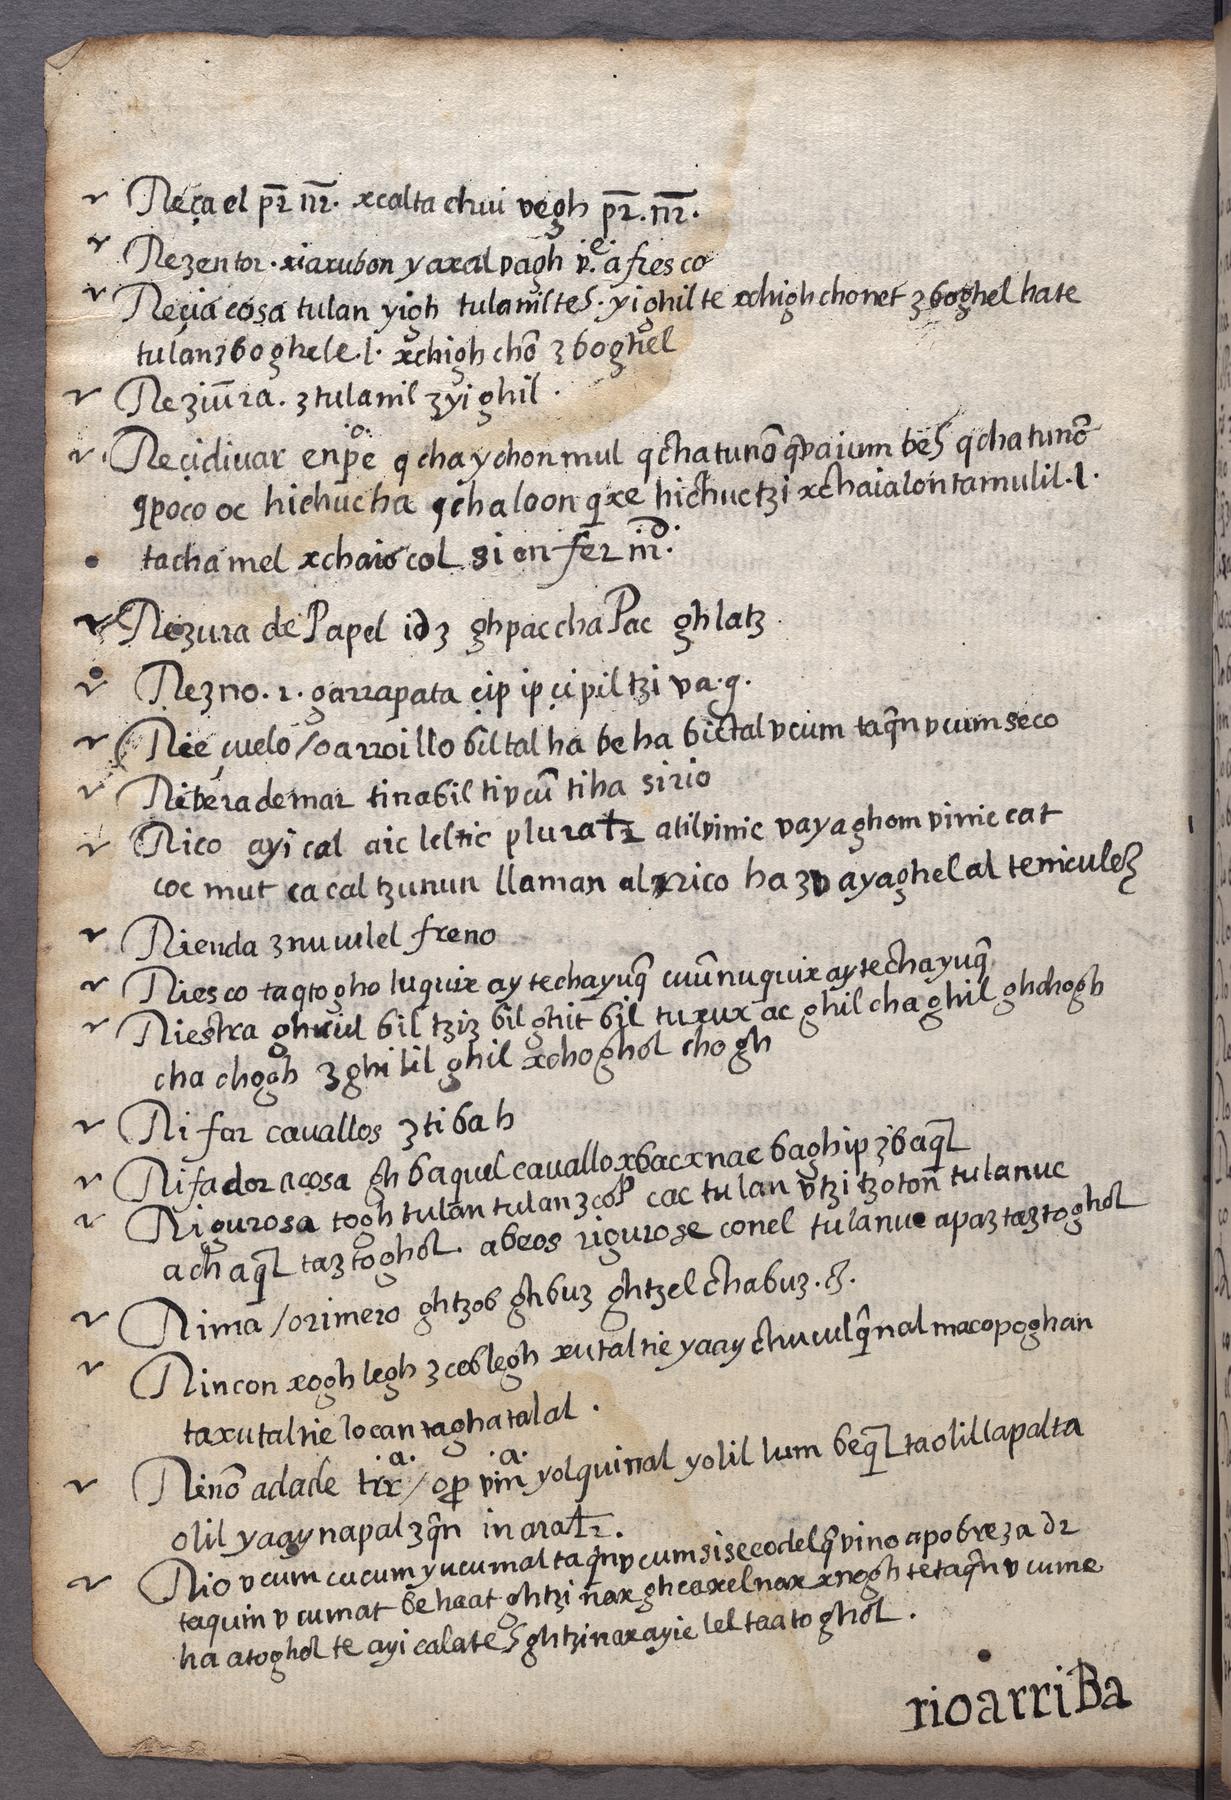 Reça el pr̄ nr̄. xcalta chui vegh pr̄. nr̄.
Rezentor. xiaxubon yaxal vagh v.ͤ a fresco
Reçia cosa tulan yigh tulanil tes. yighil te xchigh chonet zboghel hate
tulanzboghele .l. xchigh chō zboghel
Reziūra. ztulanil zyighil .
Reçidiuar enpe͐ qchaychonmul qchatunō q̄vaium bes qchatunō
qpoco oc hichucha qchaloon qxe hichuctzi xchaialontamulil .l.
tachamel xchaiocol si enfer m͐.
Rezura de Papel idz ghpacchaPac ghlatz
Rezno. r. garrapata çip ip çipil tzi va.g.
Rieçuelo / o arroillo biltal ha be ha bictal vcum taq̄n vcum seco
Ribera de mar tinabil tivcū tiha si rio
Rico ayi cal aic leltic pluratr̄ atilvinic vayaghom vinic cat
coc mut cacal tzunun llaman al rico hazvayaghelal teniculez
Rienda znuculel freno
Riesco taqtogho luquix aytechayuq̄ cuūnuquix aytechayuq̄
Riestra ghuil bil tziz bil ghit bil tuxux ac ghil chaghil ghchogh
cha chogh zghilil ghil xchoghol chogh
Rifar cauallos ztibah
Rifador acosa gh baquel cauallo xbac xnae baghip zbaq̄l
Rigurosa togh tulan tulan zcop cac tulan vtzi tzoton̄ tulanuc
achaq̄l taztoghol. abeos rigurose conel tulanuc apaz taztoghol
Rima / o rimero ghtzob ghbuz ghtzel chabuz . &.
Rincon xogh legh zcoblegh xutaltie yaay chuculq̄nal macopoghan
taxutaltie locan taghatalal .
Rinō adade trr͐ᵃ / op̄ vin͐ᵃ yolquinal yolil lum beq̄l taolillapalta
olil yaay napal zq̄n in aratr̄.
Rio vcum cucum yucumal taq̄n vcum si seco delq̄ vino apobreza dr
taquin vcumat behaat ghtzi nax ghcaxel nax xnogh tetaq̄n vcume
ha atoghol te ayi calates ghtzinaxayic leltaatoghol .
rio arriBa